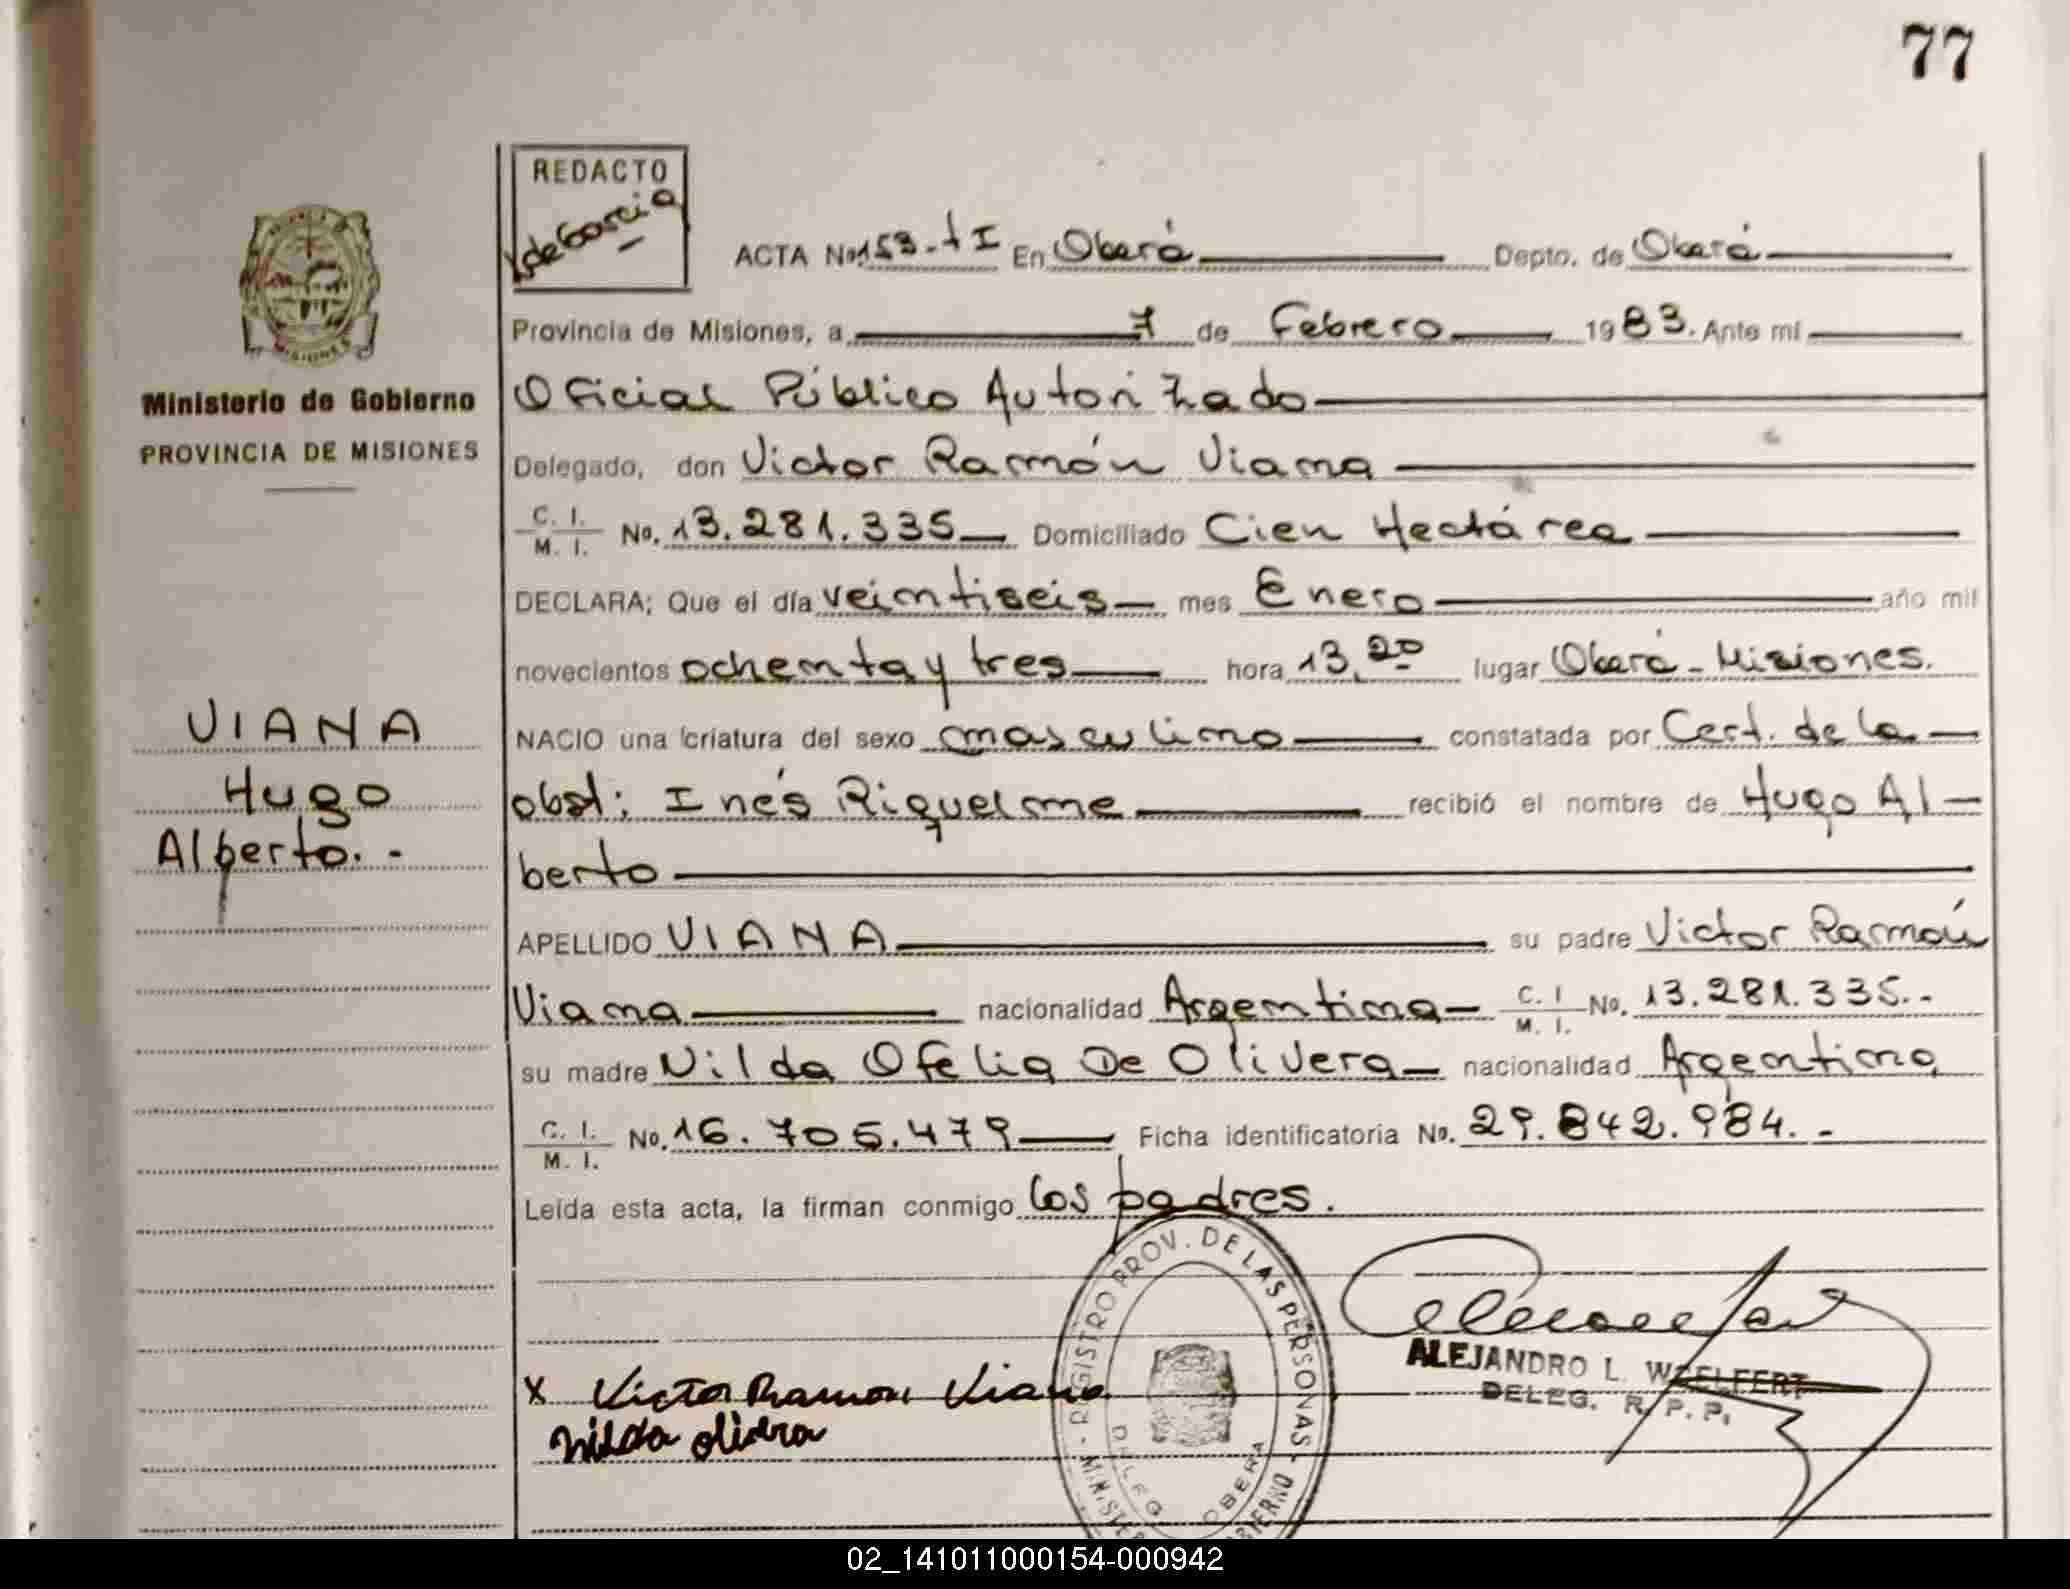 77
REDACTO
de Garcia
ACTA No. 153-tI En Oberá Depto. de Oberá
Provincia de Misiones, a 7 de Febrero 1983. Ante mí
Oficial Público Autorizado
Ministerio de Gobierno
PROVINCIA DE MISIONES
Delegado, don Victor Ramón Viana
C. I. M. I. No. 13.281.335 Domiciliado Cien Hectárea
DECLARA; Que el día veintiseis mes Enero año mil
novecientos ochenta y tres hora 13,20 lugar Oberá - Misiones.
NACIO una criatura del sexo masculino constatada por Cert. de la
obst: Inés Riquelme recibió el nombre de Hugo Al-
berto
VIANA
Hugo
Alberto. -
APELLIDO VIANA su padre Victor Ramón
Viana nacionalidad Argentina C. I M. I. No. 13.281.335. -
su madre Nilda Ofelia De Olivera nacionalidad Argentina
C. I. M. I. No. 16.705.479 Ficha identificatoria No. 29.842.984. -
Leída esta acta, la firman conmigo los padres.
REGISTRO PROV. DE LAS PERSONAS
DELEG OBERA
ALEJANDRO L. WAELFERT
DELEG. R. P. P.
X Victor Ramon Viana
Nilda Olivera
02_141011000154-000942